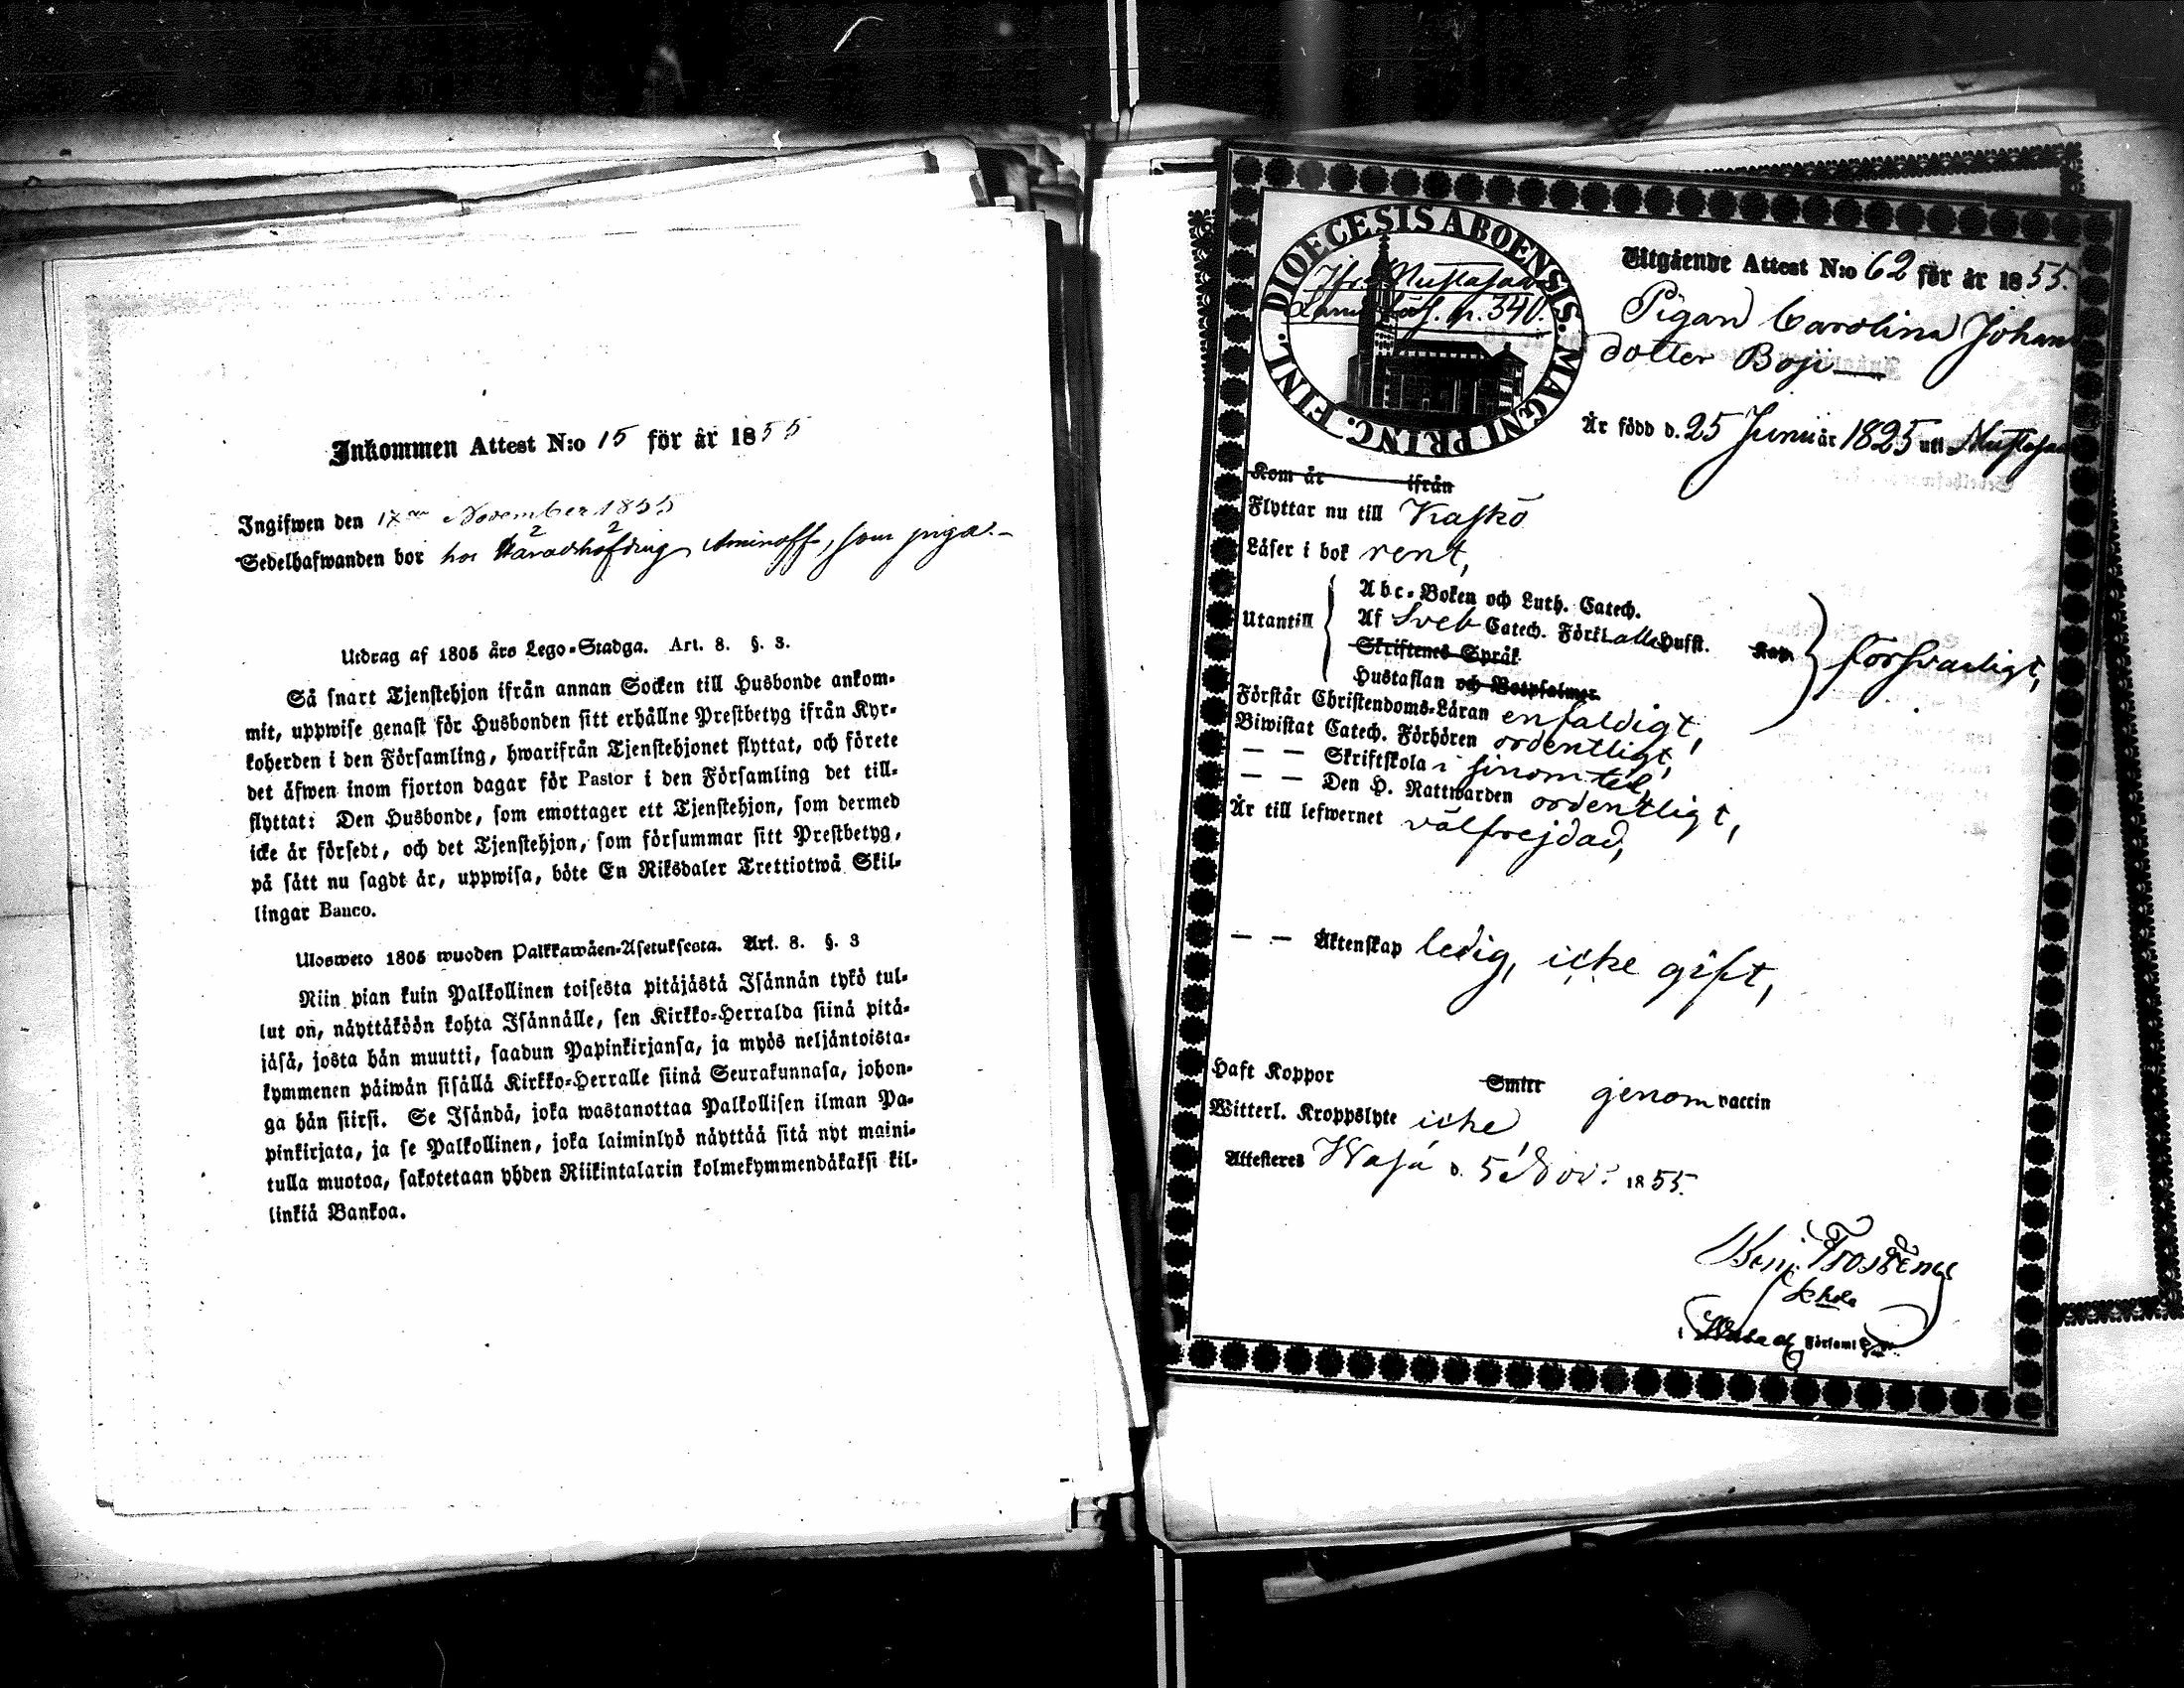 Inkommen Attest N:o 15 för år 1855
Ingifwen den 17 November 1855
Sedelhafwanden bor hos Häradshöfding Aminoff, som piga.
Utdrag af 1805 års Lego-Stadga. Art. 8. §. 3.
Så snart Tjenstehjon ifrån annan Socken till Husbonde ankom-
mit, uppwise genast för Husbonden sitt erhållne Prestbetyg ifrån Kyr-
koherden i den Församling, hwarifrån Tjenstehjonet flyttat, och förete
det äfwen inom fjorton dagar för Pastor i den Församling det till-
flyttat: Den Husbonde, som emottager ett Tjenstehjon, som dermed
icke är försedt, och det Tjenstehjon, som försummar sitt Prestbetyg,
på sätt nu sagdt är, uppwisa, böte En Riksdaler Trettiotwå Skil-
lingar Banco.
Ulosweto 1805 wuoden Palkkawäen-Asetuksesta. Art. 8. §. 3
Niin pian kuin Palkollinen toisesta pitäjästä Isännän tykö tul-
lut on, näyttäköön kohta Isännälle, sen Kirkko-Herralda siinä pitä-
jäsä, josta hän muutti, saadun Papinkirjansa, ja myös neljäntoista-
kymmenen päiwän sisällä Kirkko-Herralle siinä Seurakunnasa, johon-
ga hän siirsi. Se Isändä, joka wastanottaa Palkollisen ilman Pa-
pinkirjata, ja se Palkollinen, joka laiminlyö näyttää sitä nyt maini-
tulla muotoa, sakotetaan yhden Riikintalarin kolmekymmendäkaksi kil-
linkiä Bankoa.
DIOECESIS ABOENSIS. MAGNI PRINC. FINL.
p. 340.
Utgående Attest N:o 62 för år 1855.
Pigan Carolina Johans
dotter Boji
Är född d. 25 Junii år 1825 uti Mustasaari
Kom år ifrån
Flyttar nu till Kaskö
Läser i bok rent,
Utantill
Abc-Boken och Luth. Catech.
Af Sveb Catech. Förkl. alla Hufst. Kap.
Skriftenes Språk
Hustaflan och Botpsalmer
försvarligt,
Förstår Christendoms-Läran enfaldigt,
Biwistat Catech. Förhören ordentligt,
— — Skriftskola i sinom tid,
— — Den H. Nattwarden ordentligt,
Är till lefwernet välfrejdad,
— — Äktenskap ledig, icke gift,
Haft Koppor Smitt genom vaccin
Witterl. Kroppslyte icke
Attesteres Wasa d. 5 Nov. 1855.
Benj. Frosterus
Församl.